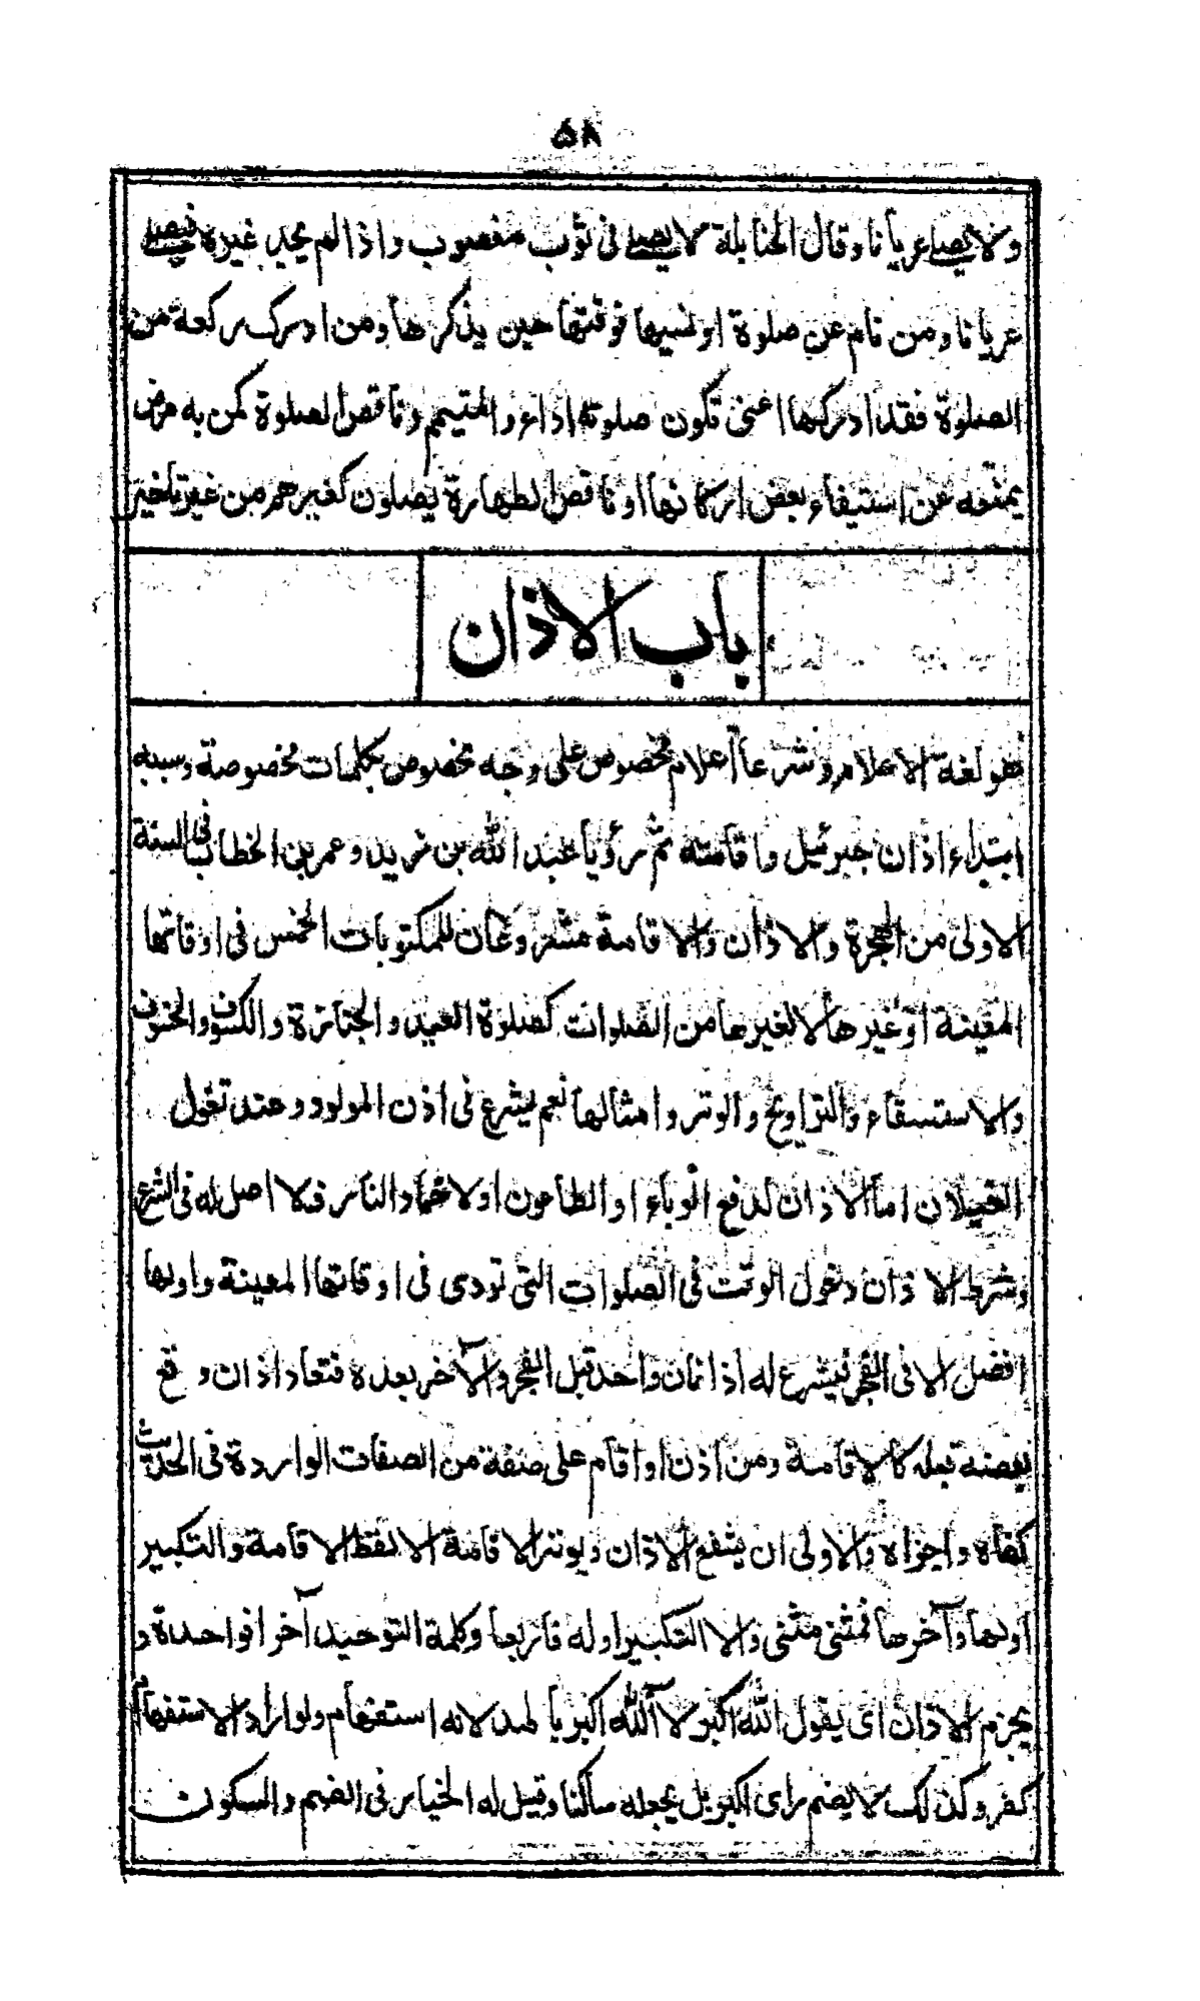 ۵۸
ولا يصلے عريانا وقال الحنابلة لا يصلے فی ثوب مغصوب واذا لم يجد غيره فيصلے
عريانا ومن نام عن صلوة او نسيها فوقتها حين يذكرها ومن ادرك ركعة من
الصلوة فقد ادركها اعنی تكون صلوته اداء والمتيمم وناقص الصلوة كمن به مرض
يمنعه عن استيفاء بعض اركانها او ناقص الطهارة يصلون كغيرهم من غير تاخير
باب الاذان
هو لغة الاعلام وشرعا اعلام مخصوص علی وجه مخصوص بكلمات مخصوصة وسببه
ابتداء اذان جبرئيل واقامته ثم رؤيا عبد الله بن زيد وعمر بن الخطاب فی السنة
الاولی من الهجرة والاذان والاقامة مشروعان للمكتوبات الخمس فی اوقاتها
المعينة او غيرها لا لغيرها من الصلوات كصلوة العيد والجنازة والكسوف والخسوف
والاستسقاء والتراويح والوتر وامثالها نعم يشرع فی اذن المولود وعند تغول
الغيلان اما الاذان لدفع الوباء او الطاعون او لاخماد النار فلا اصل له فی الشرع
وشرط الاذان دخول الوقت فی الصلوات التی تودی فی اوقاتها المعينة واولها
افضل الا فی الفجر فيشرع له اذانان واحد قبل الفجر والآخر بعده فتعاد اذان وقع
بعضه قبله كالاقامة ومن اذن او اقام علی صفة من الصفات الواردة فی الحديث
كفاه واجزاه والاولی ان يشفع الاذان ويوتر الاقامة الا لفظ الاقامة والتكبير
اولها وآخرها فمثنی مثنی والا التكبير اوله فاربعا وكلمة التوحيد آخرا فواحدة و
يجزم الاذان ای يقول الله اكبر لا آلله اكبر بالمد لانه استفهام ولو اراد الاستفهام
كفر وكذلك لا يضم راى اكبر بل يجعله ساكنا وقيل له الخيار فی الضم والسكون